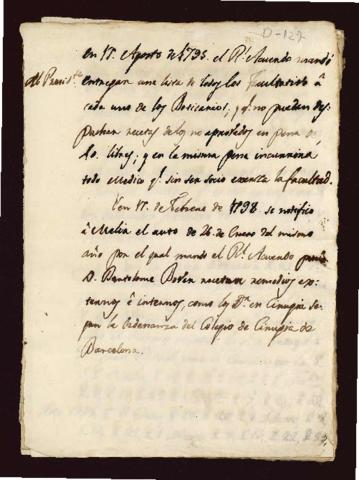 D-127
en 17. Agosto de 1795. el Rl. Acuerdo mandó
entregar una lista de todos los facultativos á
cada uno de los Boticarios, y qe. no puedan des-
pachar recetas de los no aprobados en pena de
10. libras; y en la misma pena incurrirá
todo Medico qe. sin ser socio exerza la facultad.
Y en 17. de Febrero de 1798. se notificó
á Melia el auto de 26. de Enero del mismo
año por el qual mandó el Rl. Acuerdo
D. Bartolome Bover recetase remedios ex-
ternos é internos, como los Drs. en Cirugia se-
gun la Ordenanza del Colegio de Cirugia de
Barcelona.